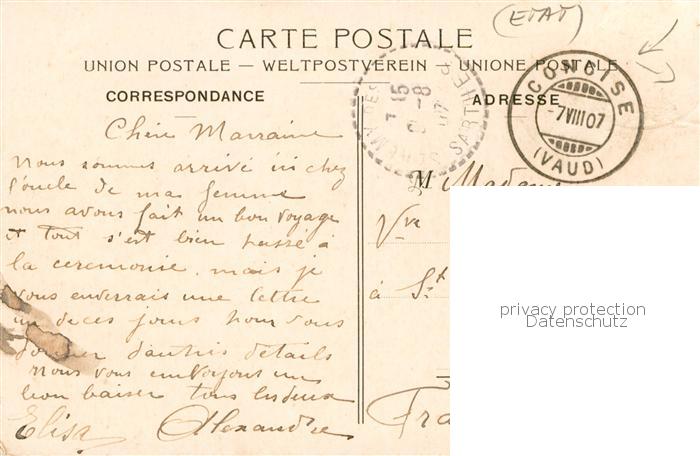 (ETAT)
CARTE POSTALE
UNION POSTALE — WELTPOSTVEREIN — UNIONE POSTALE
CORRESPONDANCE
ADRESSE
CONCISE
-7 VIII 07
(VAUD)
SARTHE
Chère Marraine
Nous sommes arrivé ici chez
l'oncle de ma femme
nous avons fait un bon voyage
et tout s'est bien passé à
la ceremonie, mais je
vous enverrais une lettre
un de ces jours pour vous
donner d'autres détails
Nous vous envoyons un
bon baiser tous les deux
Elisa Alexandre
M Madame
Vve
à St
Fra
privacy protection
Datenschutz